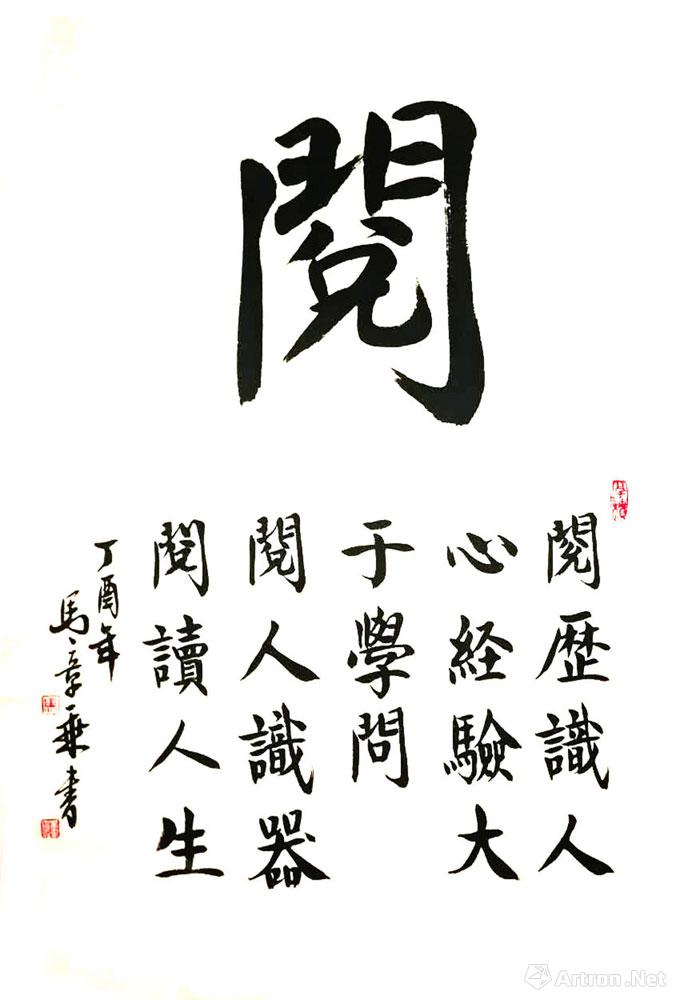 閲
閲歴識人
心経驗大
于學問
閲人識器
閲讀人生
丁酉年
馬章乘書
Artron.Net